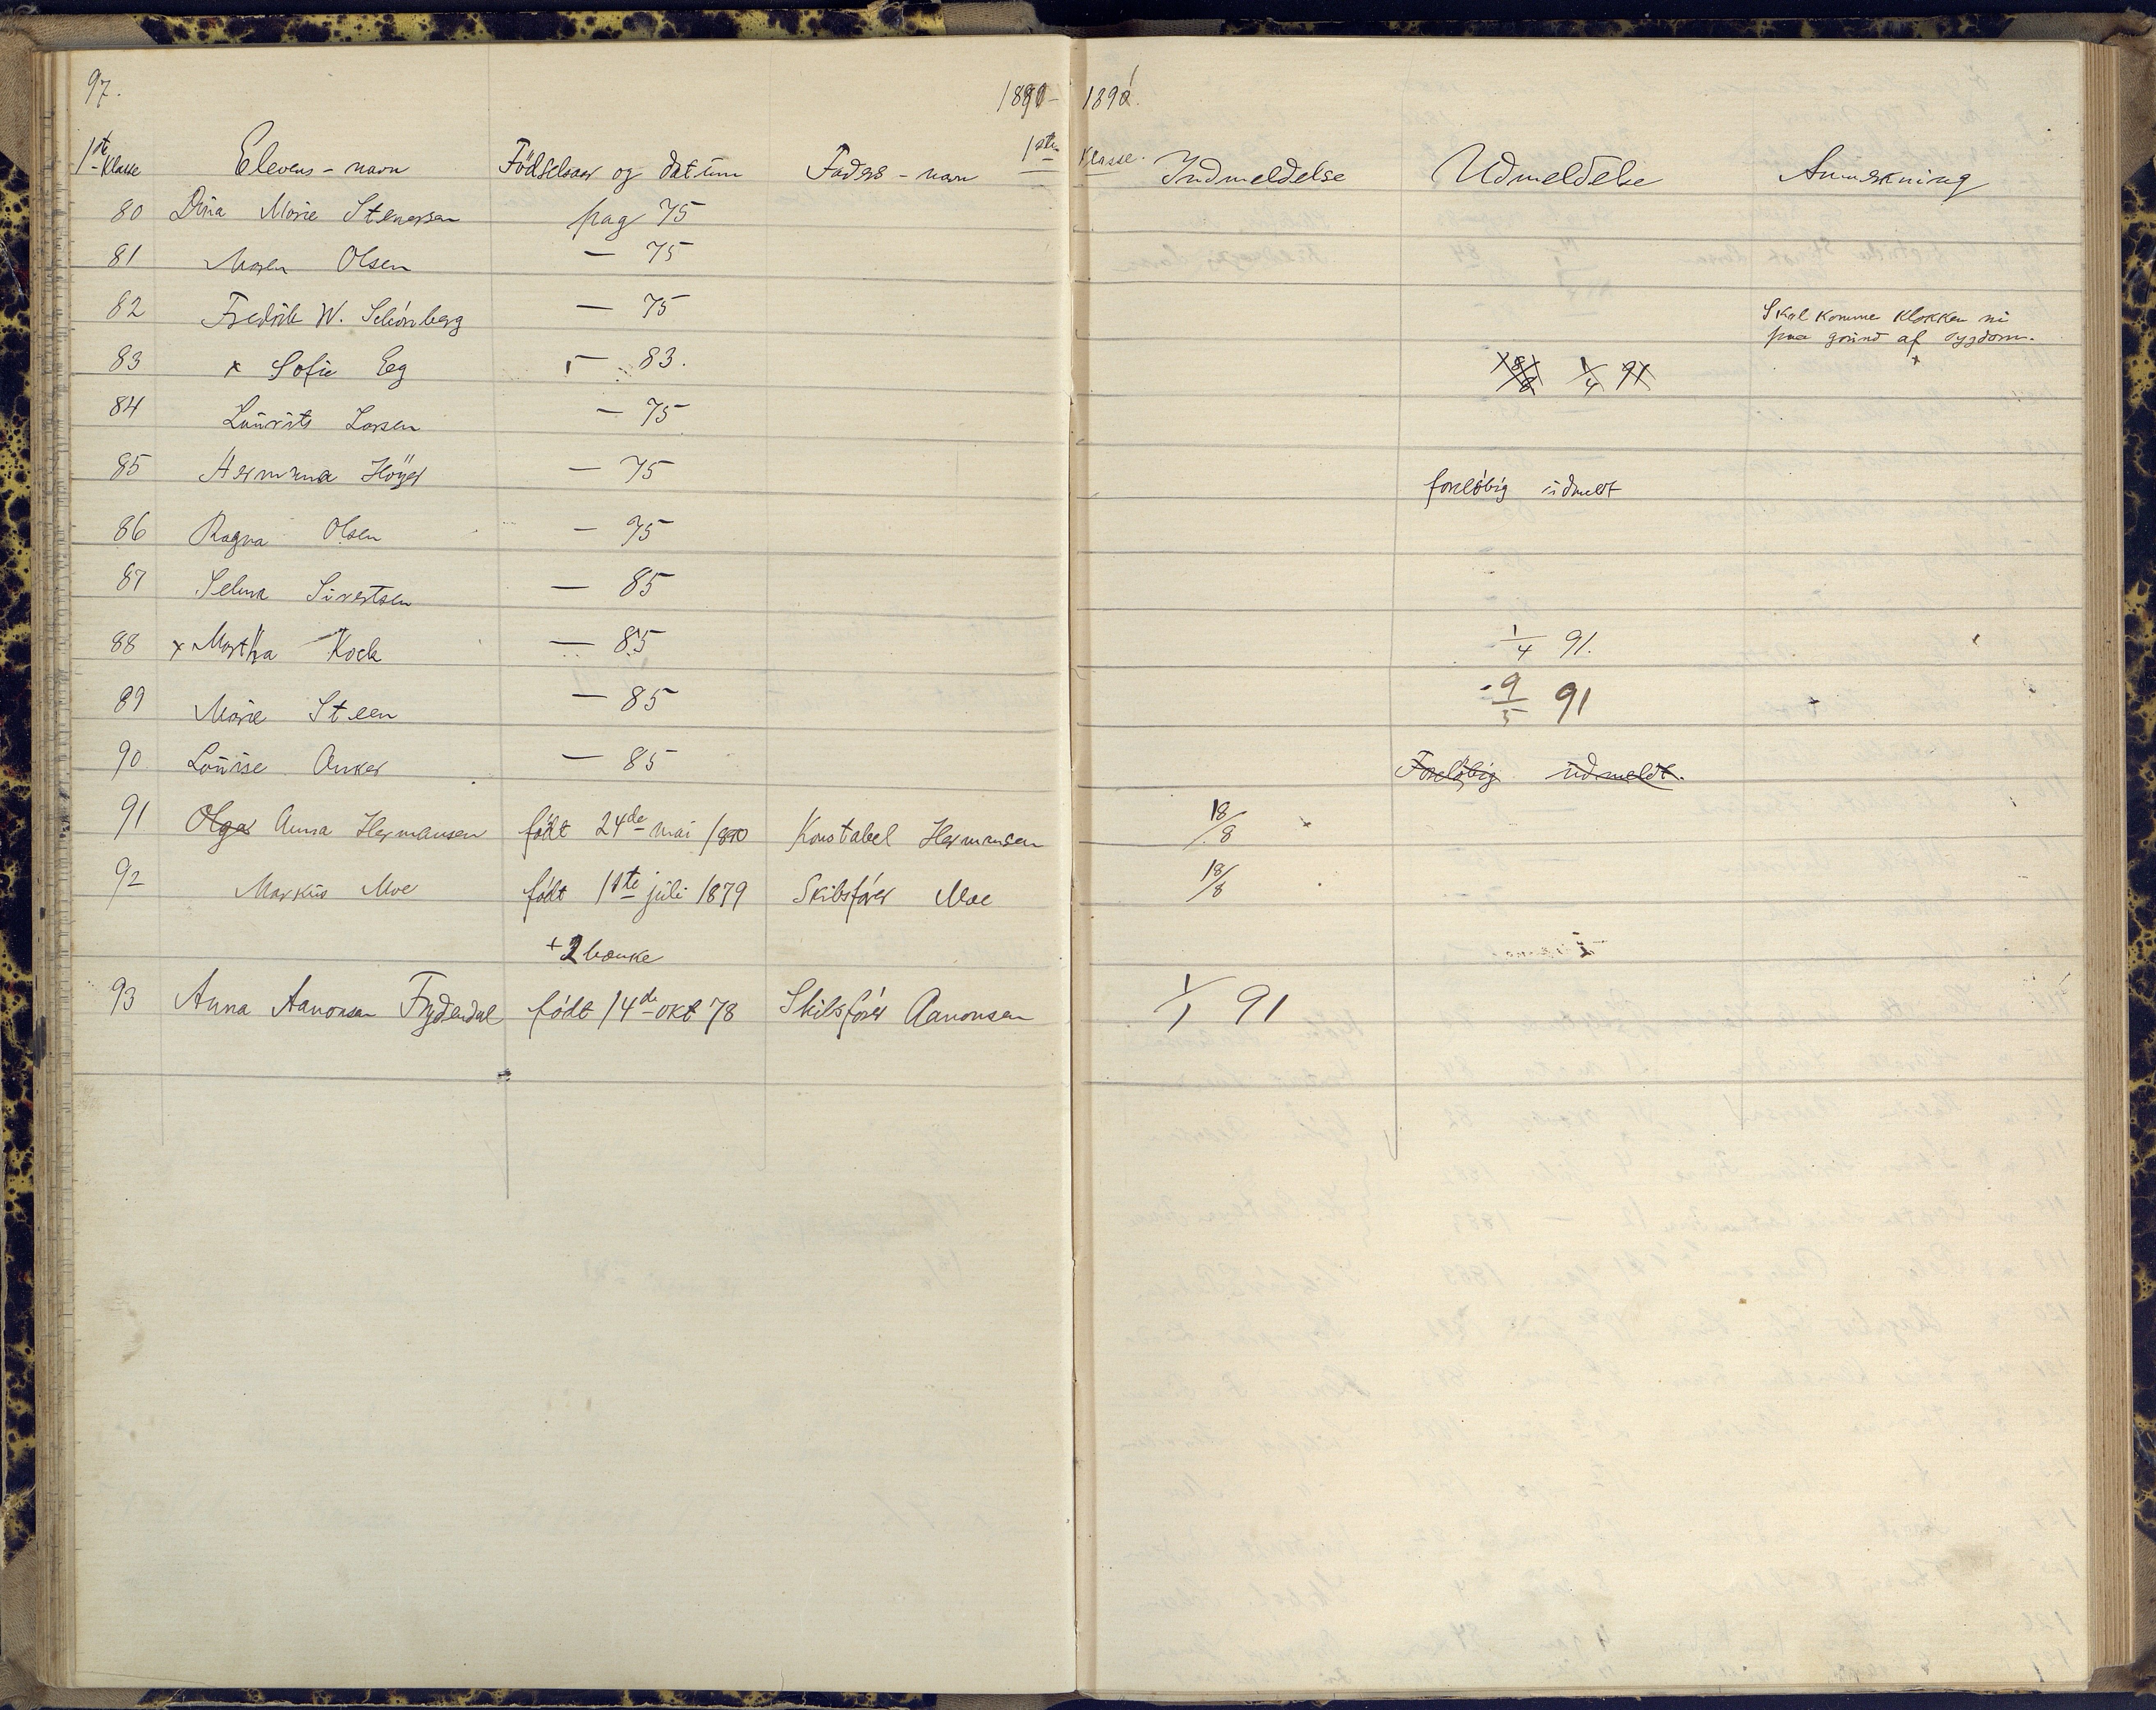 97. 1890- 1891.
1ste Klasse Elevens-navn Födselsaar og datum Faders-navn 1ste Klasse. Indmeldelse Udmeldelse Anmerkning
80 Dina Marie Stenersen pag 75
81 Maren Olsen — 75
82 Fredrik W. Schönberg — 75 Skal komme klokken ni
paa grund af sygdom.
83 x Sofie Eg — 83. 1/4 91
84 Laurits Larsen — 75
85 Hermina Höyer — 75 foreløbig udmeldt
86 Ragna Olsen — 75
87 Selma Sivertsen — 85
88 x Martha Kock — 85 1/4 91.
89 Marie Steen — 85 9/5 91
90 Louise Anker — 85 Foreløbig udmeldt.
91 Olga Anna Hermansen født 24de mai 1880 Konstabel Hermansen 18/8
92 Markus Moe født 11te juli 1879 Skibsfører Moe 18/8
+ 2 bænke
93 Anna Aanonsen Frydendal født 14de okt 78 Skibsfører Aanonsen 1/1 91